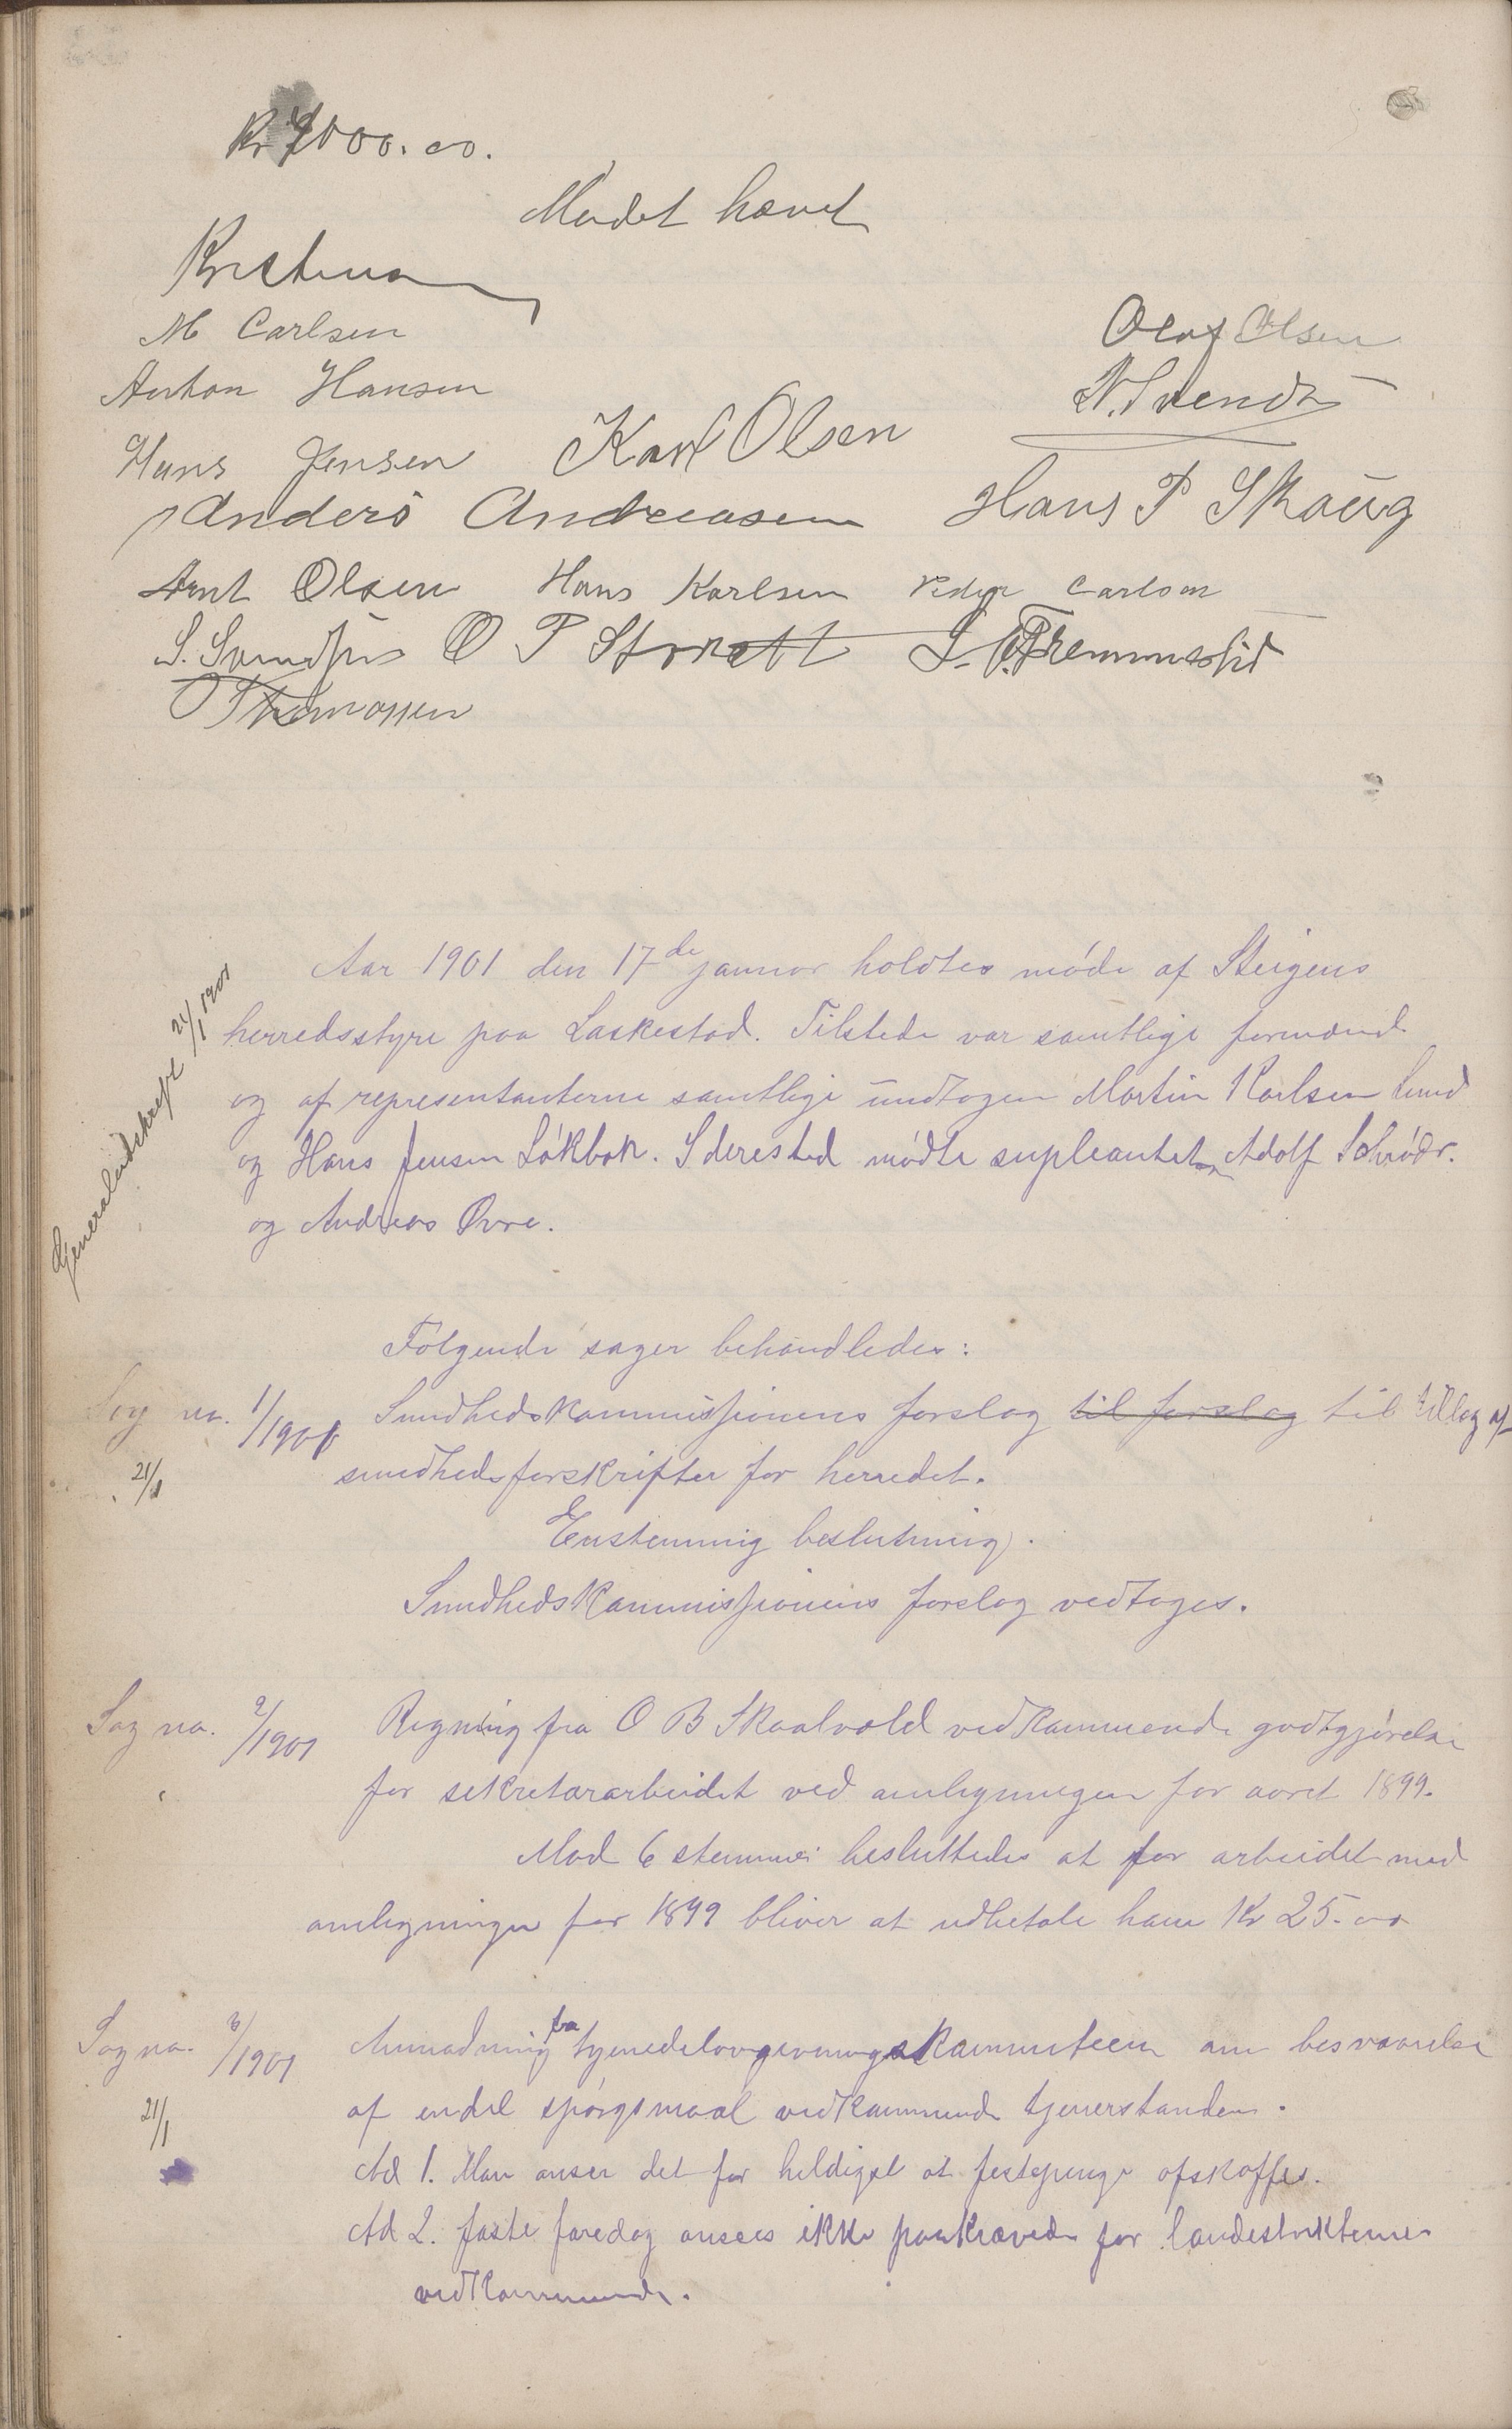 Kr 7000.00.
Mødet hævet
Kristensen
M Carlsen
Olaf Olsen
Anton Hansen
N. Svendsen
Hans Jensen Karl Olsen
Anders Andreasen Hans P Skaug
Arnt Olsen Hans Karlsen Peder Carlsen
S. Svendsen O P Storvatt
O Thomassen
Generaludskrift 21/1 1901
Aar 1901 den 17de januar holdtes møde af Steigens
herredsstyre paa Laskestad. Tilstede var samtlige formænd
og af representanterne samtlige undtagen Martin Karlsen Lund
og Hans Jensen Løkbak. I deres sted mødte supleanterne Adolf Schrøder.
og Andreas Øvre.
Følgende sager behandledes:
Sag no. 1/1901 Sundhedskommissionens forslag til forslag til tillæg af
21/1 sundhedsforskrifter for herredet.
Enstemmig beslutning.
Sundhedskommissionens forslag vedtages.
Sag no. 2/1901 Regning fra O B Skaalvold vedkommende godtgjørelse
for sekretærarbeidet ved omligningen for aaret 1899.
Mod 6 stemmer besluttedes at for arbeidet med
omligningen for 1899 bliver at udbetale ham Kr 25.00
Sag no. 3/1901 Anmodning fra tyendelovgivningskommiteen om besvarelse
21/1 af endel spørgsmaal vedkommende tjenerstanden.
Ad 1. Man anser det for heldigst at festepenge afskaffes.
Ad 2. faste faredag ansees ikke paakrævede for landdistrikternes
vedkommende.